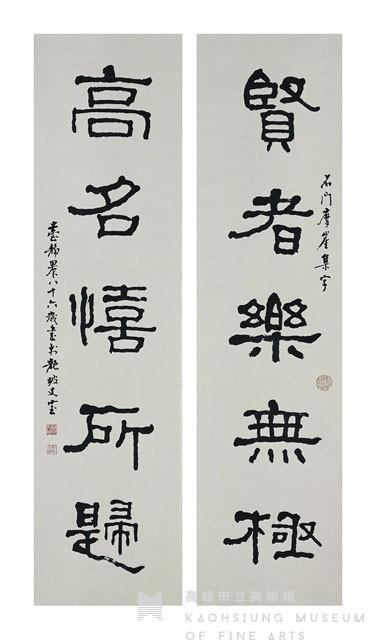 賢者樂無極
石門摩崖集字
高名憘所歸
臺靜農八十六歲書於龍坡丈室
高雄市立美術館
KAOHSIUNG MUSEUM
OF FINE ARTS